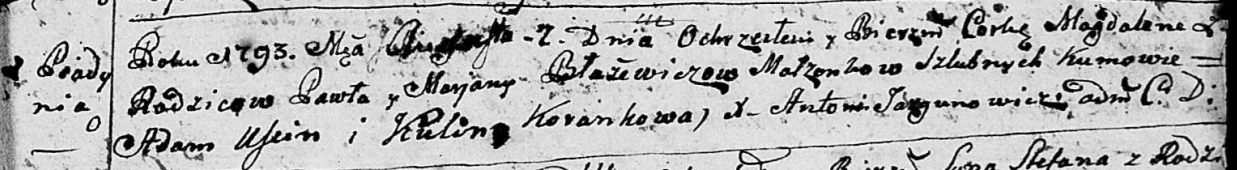 Prady
nia
Roku 1793. Mca Augusta - 2 - Dnia Ochrzciłem y Bierzm Corkę Magdalene z
Rodzicow Pawła y Maryany Błażewiczow Małżonkow Szlubnych Kumowie =
Adam Usein i Kulina Korankowa) X- Antoni Jazgunowicz adm C. D.
Syna Stefana z Rodzi